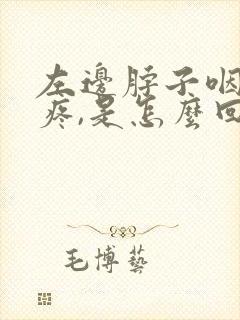 左邊脖子咽
疼,是怎麼回
毛博藝